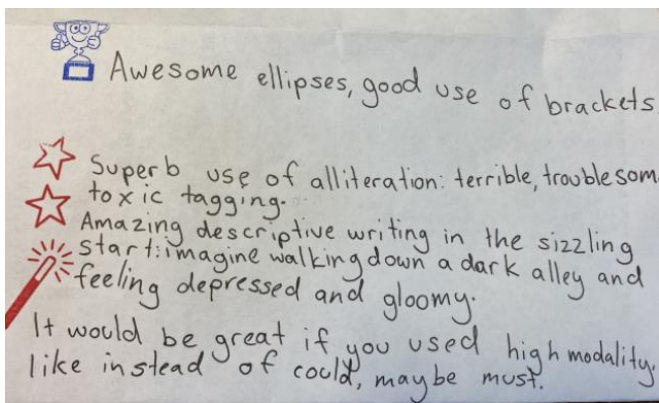 Awesome ellipses, good use of brackets.
Superb use of alliteration: terrible, troublesom
toxic tagging.
Amazing descriptive writing in the sizzling
start: imagine walking down a dark alley and
feeling depressed and gloomy.
It would be great if you used high modality.
like instead of could, maybe must.